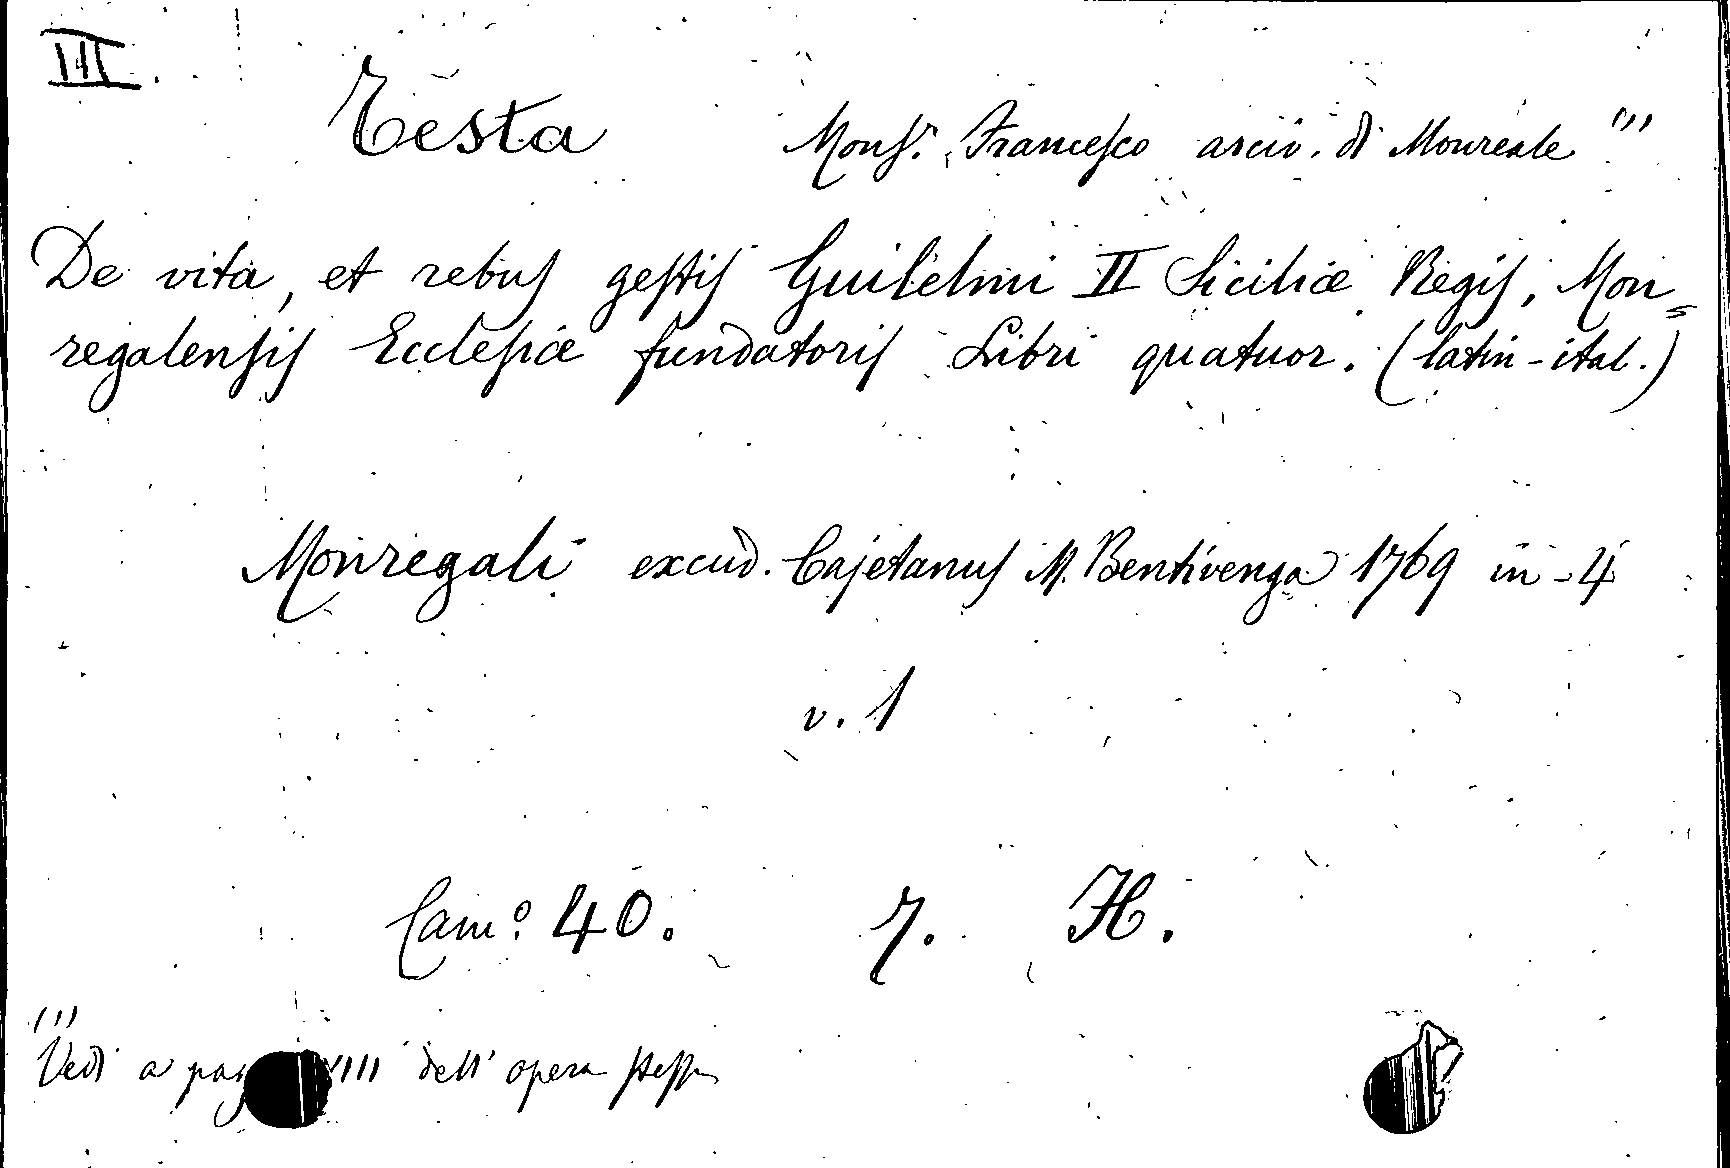 III.
Testa Monsr. Francesco arciv. di Monreale (1)
De vita, et rebus gestis Guilelmi II Siciliæ Regis, Mon=
regalensis Ecclesiæ fundatoris Libri quatuor. (latin-ital.)
Monregali excud. Cajetanus M. Bentivenga 1769 in-4
v. 1
Camo. 40. 7. H.
(1)
Vedi a pag dell' opera stessa